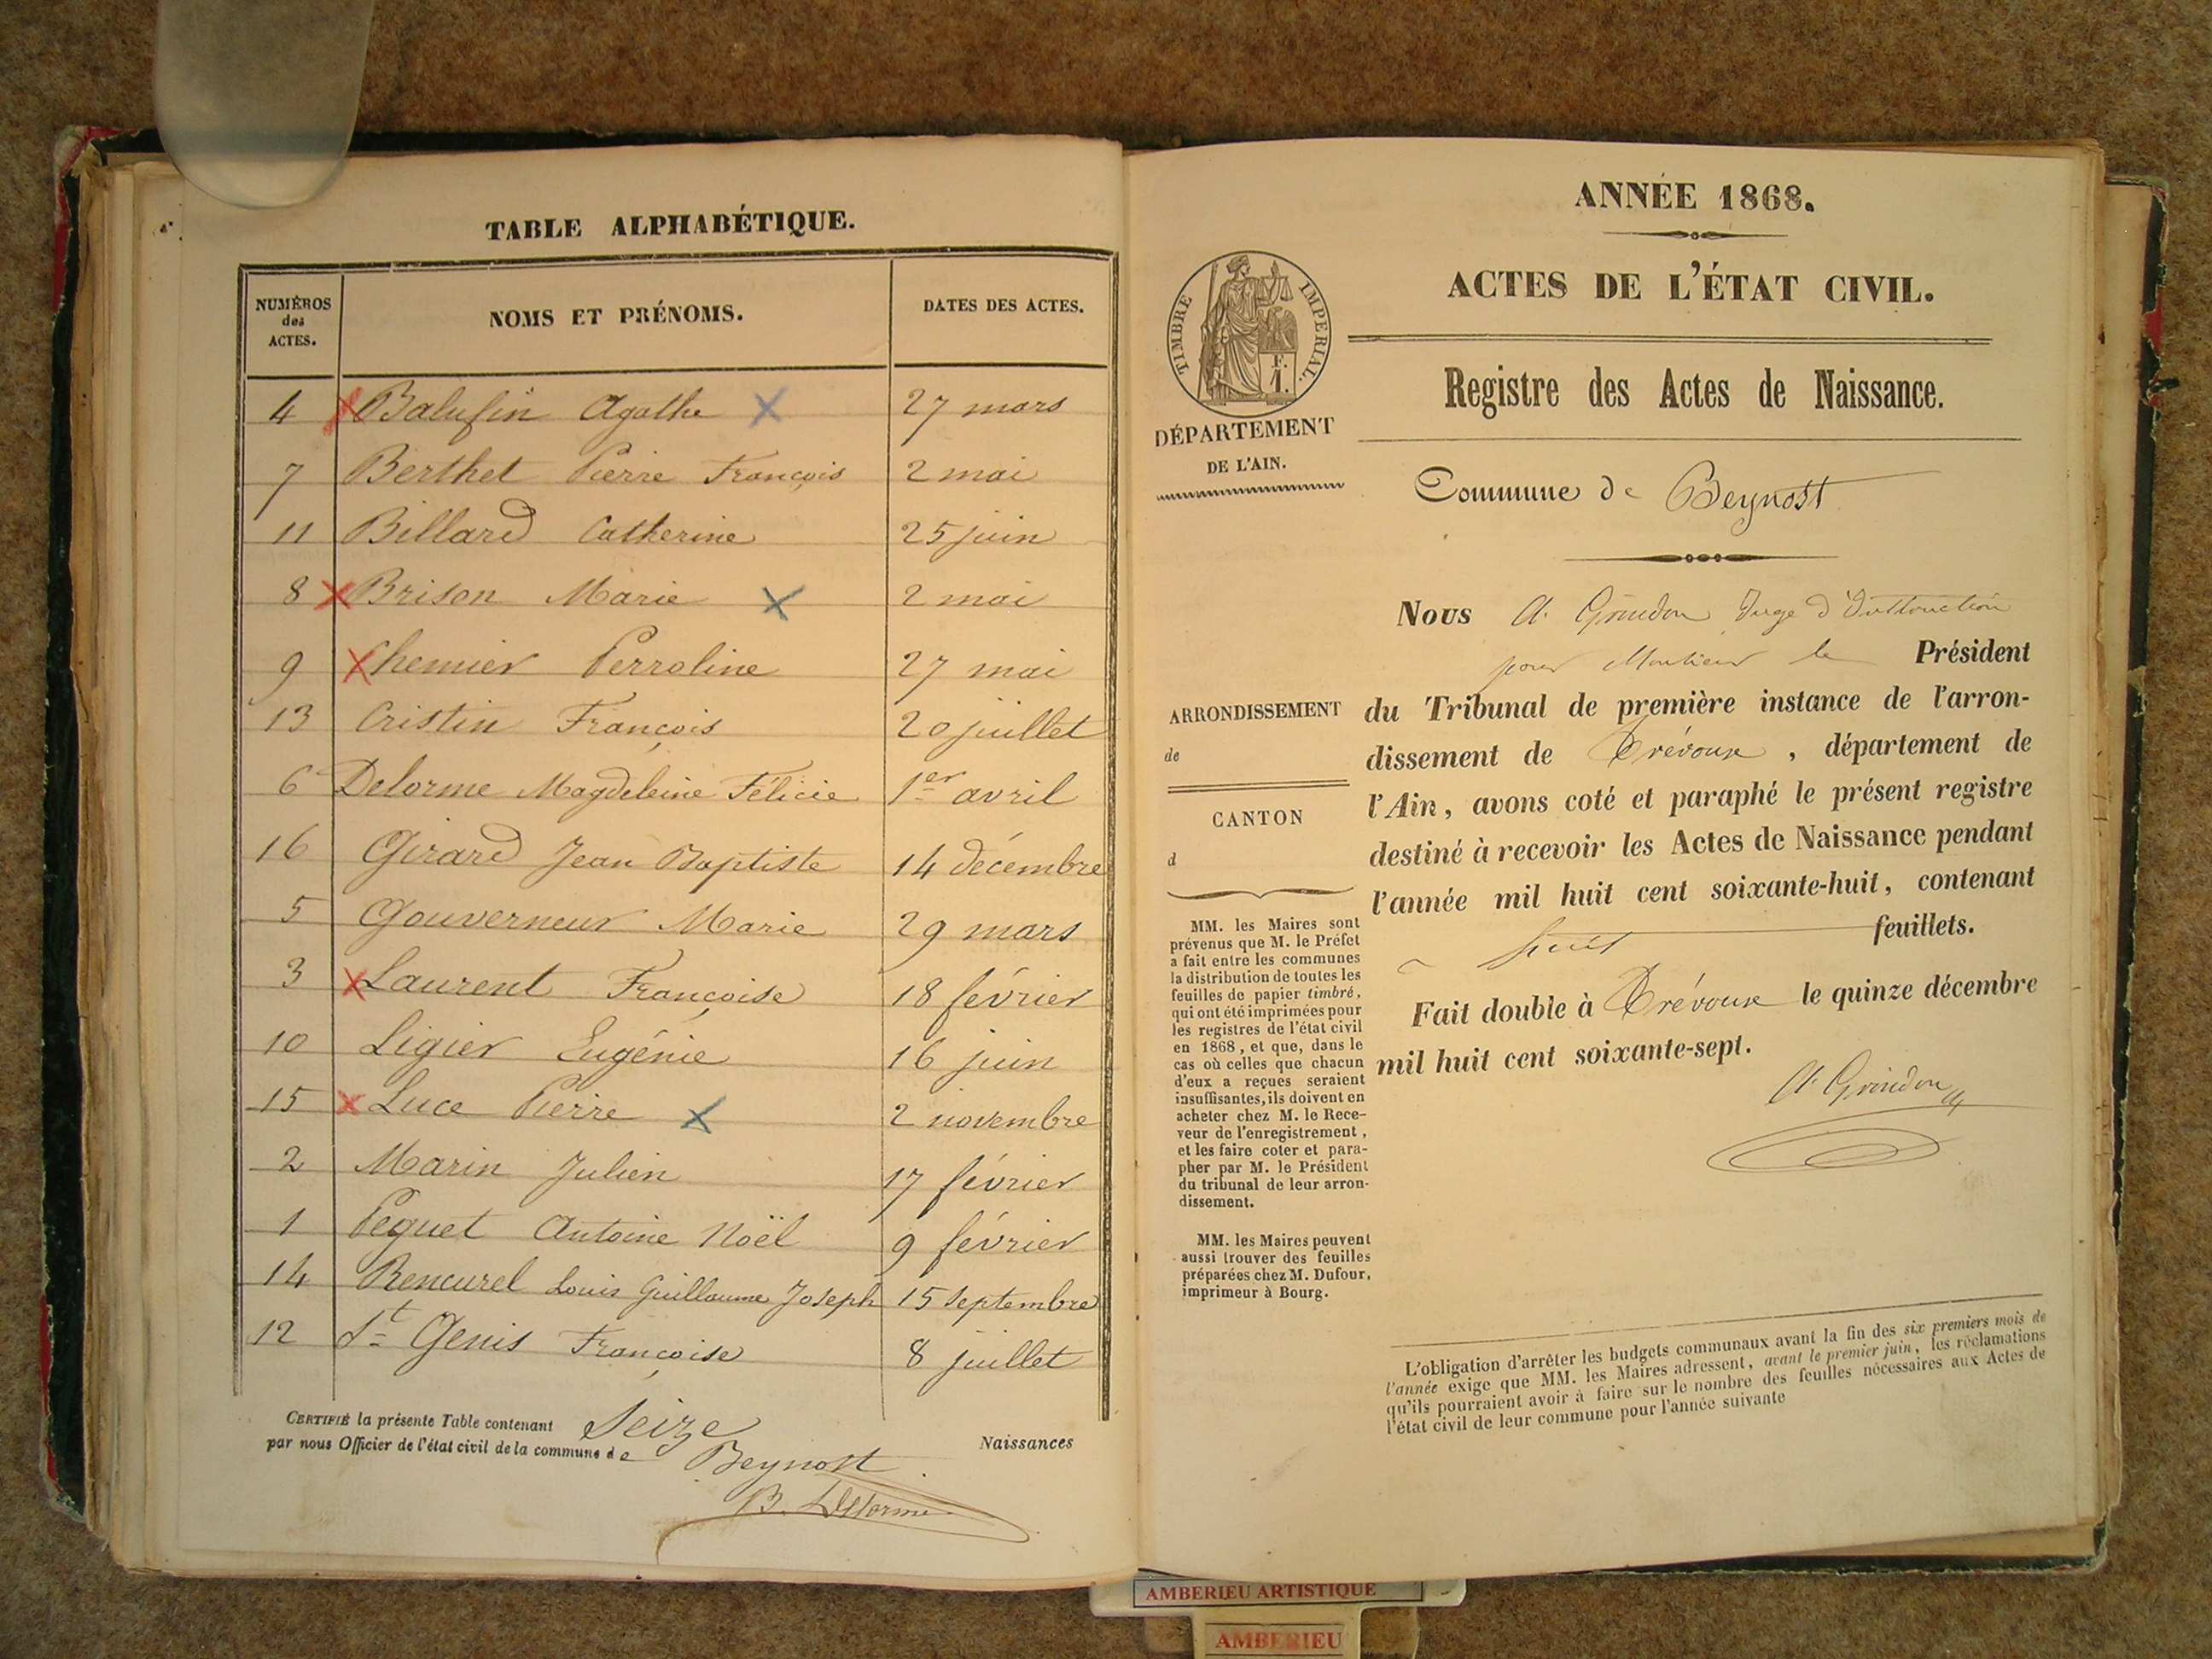 TABLE ALPHABÉTIQUE.
NUMÉROS des ACTES.
NOMS ET PRÉNOMS.
DATES DES ACTES.
4 Balufin Agathe 27 mars
7 Berthet Pierre François 2 mai
11 Billard Catherine 25 juin
8 Brison Marie 2 mai
9 Chemier Perroline 27 mai
13 Cristin François 20 juillet
6 Delorme Magdeleine Félicie 1er avril
16 Girard Jean Baptiste 14 décembre
5 Gouverneur Marie 29 mars
3 Laurent Françoise 18 février
10 Ligier Eugénie 16 juin
15 Luce Pierre 2 novembre
2 Marin Julien 17 février
1 Peguet Antoine Noël 9 février
14 Rencurel Louis Guillaume Joseph 15 septembre
12 St Genis Françoise 8 juillet
CERTIFIÉ la présente Table contenant Seize Naissances
par nous Officier de l'état civil de la commune de Beynost
B. Delorme
ANNÉE 1868.
ACTES DE L'ÉTAT CIVIL.
TIMBRE IMPERIAL.
F.
1.
Registre des Actes de Naissance.
DÉPARTEMENT
DE L'AIN.
Commune de Beynost
Nous A. Grindon Juge d'Instruction
pour Monsieur le Président
du Tribunal de première instance de l'arron-
dissement de Trévoux, département de
l'Ain, avons coté et paraphé le présent registre
destiné à recevoir les Actes de Naissance pendant
l'année mil huit cent soixante-huit, contenant
huit feuillets.
Fait double à Trévoux le quinze décembre
mil huit cent soixante-sept.
A. Grindon
ARRONDISSEMENT
de
CANTON
d
MM. les Maires sont
prévenus que M. le Préfet
a fait entre les communes
la distribution de toutes les
feuilles de papier timbré,
qui ont été imprimées pour
les registres de l'état civil
en 1868, et que, dans le
cas où celles que chacun
d'eux a reçues seraient
insuffisantes, ils doivent en
acheter chez M. le Rece-
veur de l'enregistrement,
et les faire coter et para-
pher par M. le Président
du tribunal de leur arron-
dissement.
MM. les Maires peuvent
aussi trouver des feuilles
préparées chez M. Dufour,
imprimeur à Bourg.
L'obligation d'arrêter les budgets communaux avant la fin des six premiers mois de
l'année exige que MM. les Maires adressent, avant le premier juin, les réclamations
qu'ils pourraient avoir à faire sur le nombre des feuilles nécessaires aux Actes de
l'état civil de leur commune pour l'année suivante
AMBERIEU ARTISTIQUE
AMBERIEU